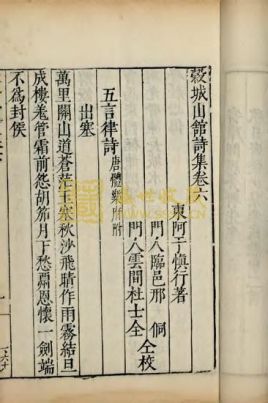 穀城山館詩集卷六
東阿于慎行著
門人臨邑邢侗
門人雲間杜士全仝校
五言律詩唐體樂府附
出塞
萬里關山道蒼茫玉塞秋沙飛晴作雨霧結旦
成樓羌管霜前怨胡笳月下愁酬恩懷一劍端
不爲封侯